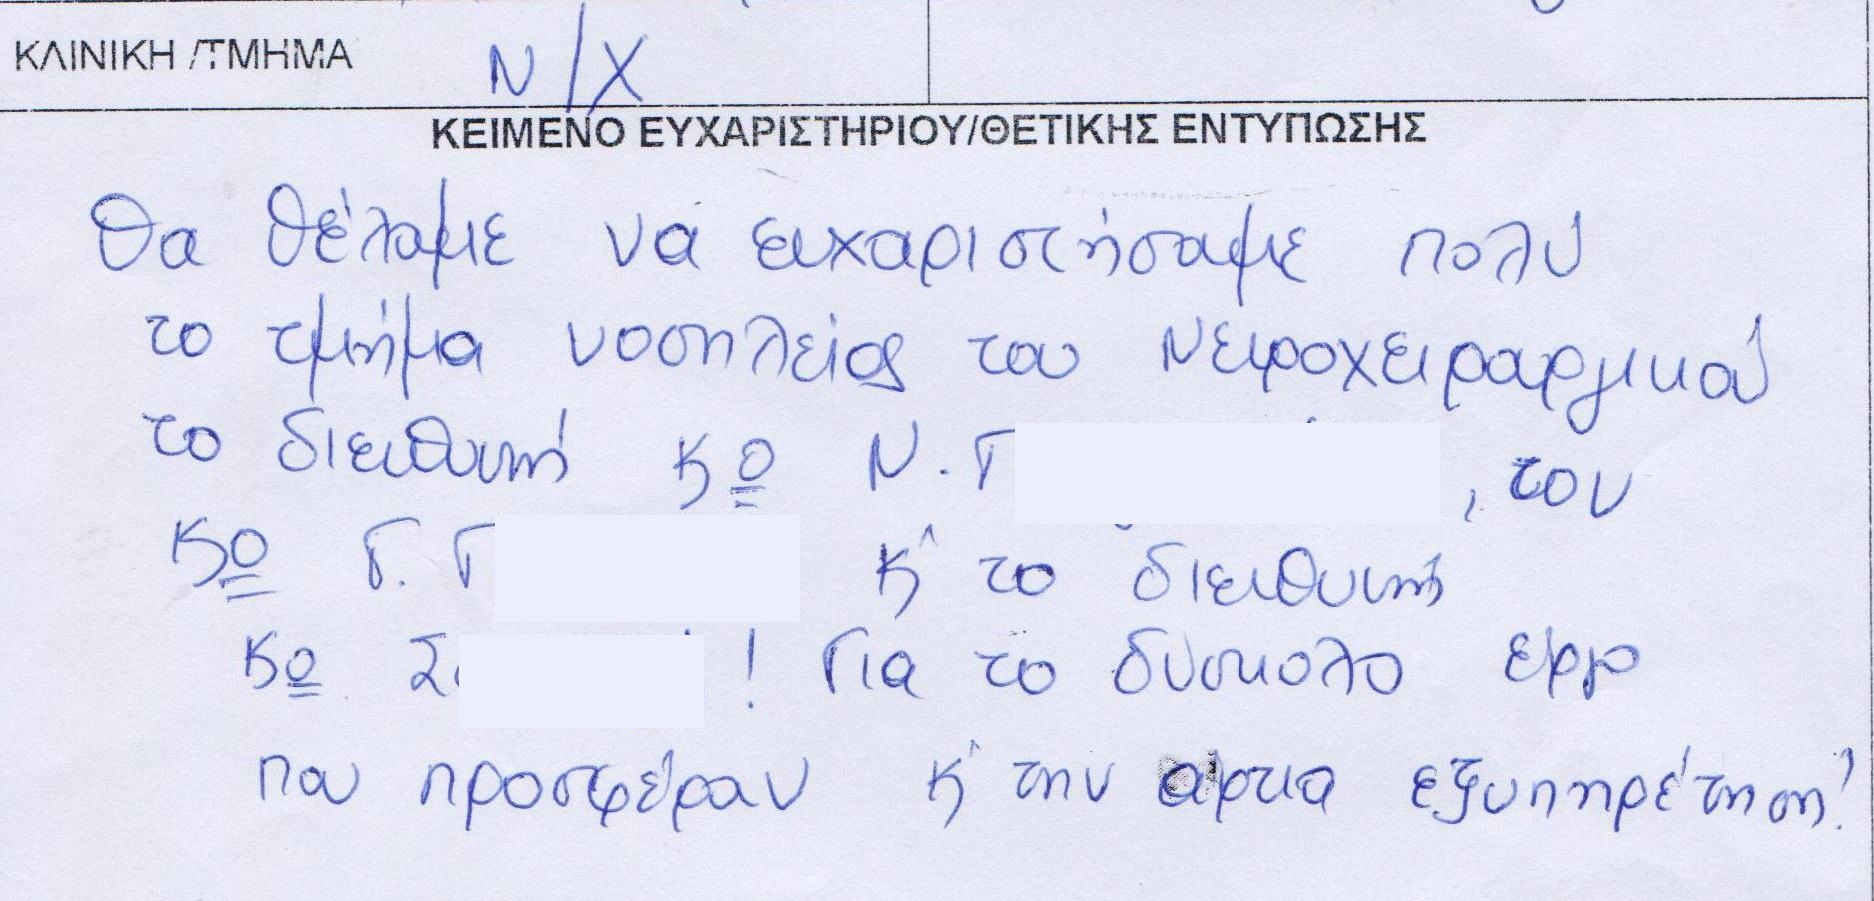 ΚΛΙΝΙΚΗ /ΤΜΗΜΑ Ν/Χ
ΚΕΙΜΕΝΟ ΕΥΧΑΡΙΣΤΗΡΙΟΥ/ΘΕΤΙΚΗΣ ΕΝΤΥΠΩΣΗΣ
Θα θέλαμε να ευχαριστήσαμε πολύ
το τμήμα νοσηλείας του Νευροχειρουργικού
το διευθυντή κο Ν. Γ , τον
κο Γ. Γ κ' το διευθυντή
κο Σ ! Για το δύσκολο έργο
που προσφέραν κ' την άρτια εξυπηρέτηση!